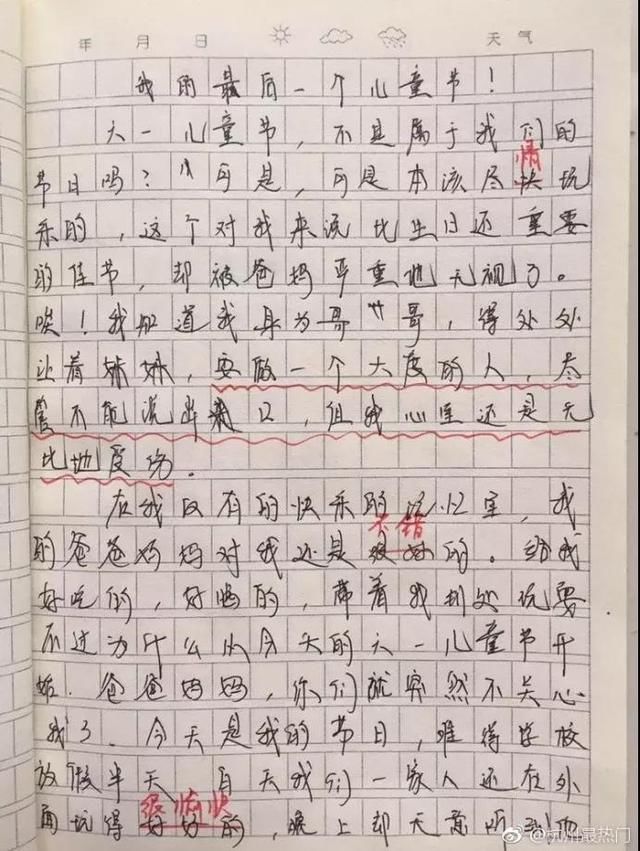 年 月 日 天气
我的最后一个儿童节!
六一儿童节,不是属于我们的
情
节日吗?"可是,可是本该尽快玩
乐的,这个对我来说比生日还重要
的佳节,却被爸妈严重地无视了。
唉!我知道我身为哥哥,得处处
让着妹妹,要做一个大度的人,尽
管不能说出口,但我心里还是无
比地受伤.
在我仅有的快乐的记忆里,我
不错
的爸爸妈妈对我还是很好的。给我
好吃的,好喝的,带着我到处玩耍
不过为什么从今天的六一儿童节开
始.爸爸妈妈,你们就突然不关心
我了、今天是我的节日,难得学校
放假半天 白天我们一家人还在外
很愉快
面玩得好好的,晚上却无意听到他
@杭州最热门